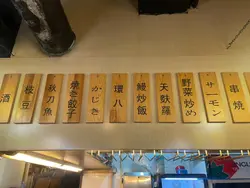 串焼
サーモン
野菜炒め
天麩羅
鰻炒飯
環八
かじき
焼き餃子
秋刀魚
枝豆
酒